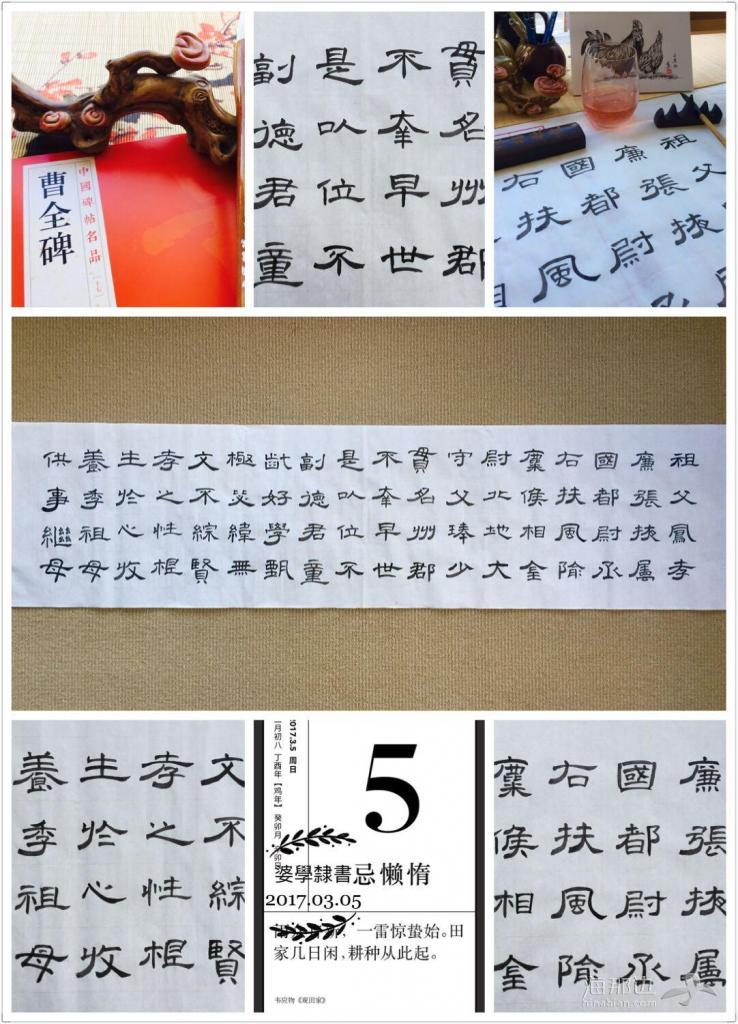 中國碑帖名品
曹全碑
貫名州郡
不幸早世
是以位不
副德君童
祖父
廉張掖
國都尉
右扶風
相
祖父鳳孝
廉張掖属
國都尉丞
右扶風隃
麋侯相金
尉北地大
守父琫少
貫名州郡
不幸早世
是以位不
副德君童
齔好學甄
極毖緯無
文不綜賢
孝之性根
生於心收
養季祖母
供事繼母
文不綜賢
孝之性根
生於心收
養季祖母
2017.3.5 周日
月初八 丁酉年【鸡年】癸卯月
5
婆學隸書忌懒惰
2017.03.05
，一雷惊蛰始。田
家几日闲，耕种从此起。
韦应物《观田家》
廉張掖属
國都尉丞
右扶風隃
麋侯相金
海那边
hinabian.com